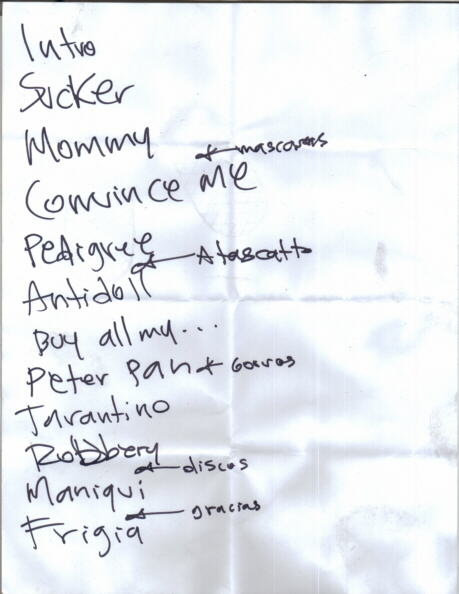 Intro
Sucker
Mommy
← mascaras
Convince me
Pedigree
← Atascatto
Antidoll
Buy all my...
Peter Pan ← Gorras
Tarantino
Robbery
← discos
Maniqui
← gracias
Frigia